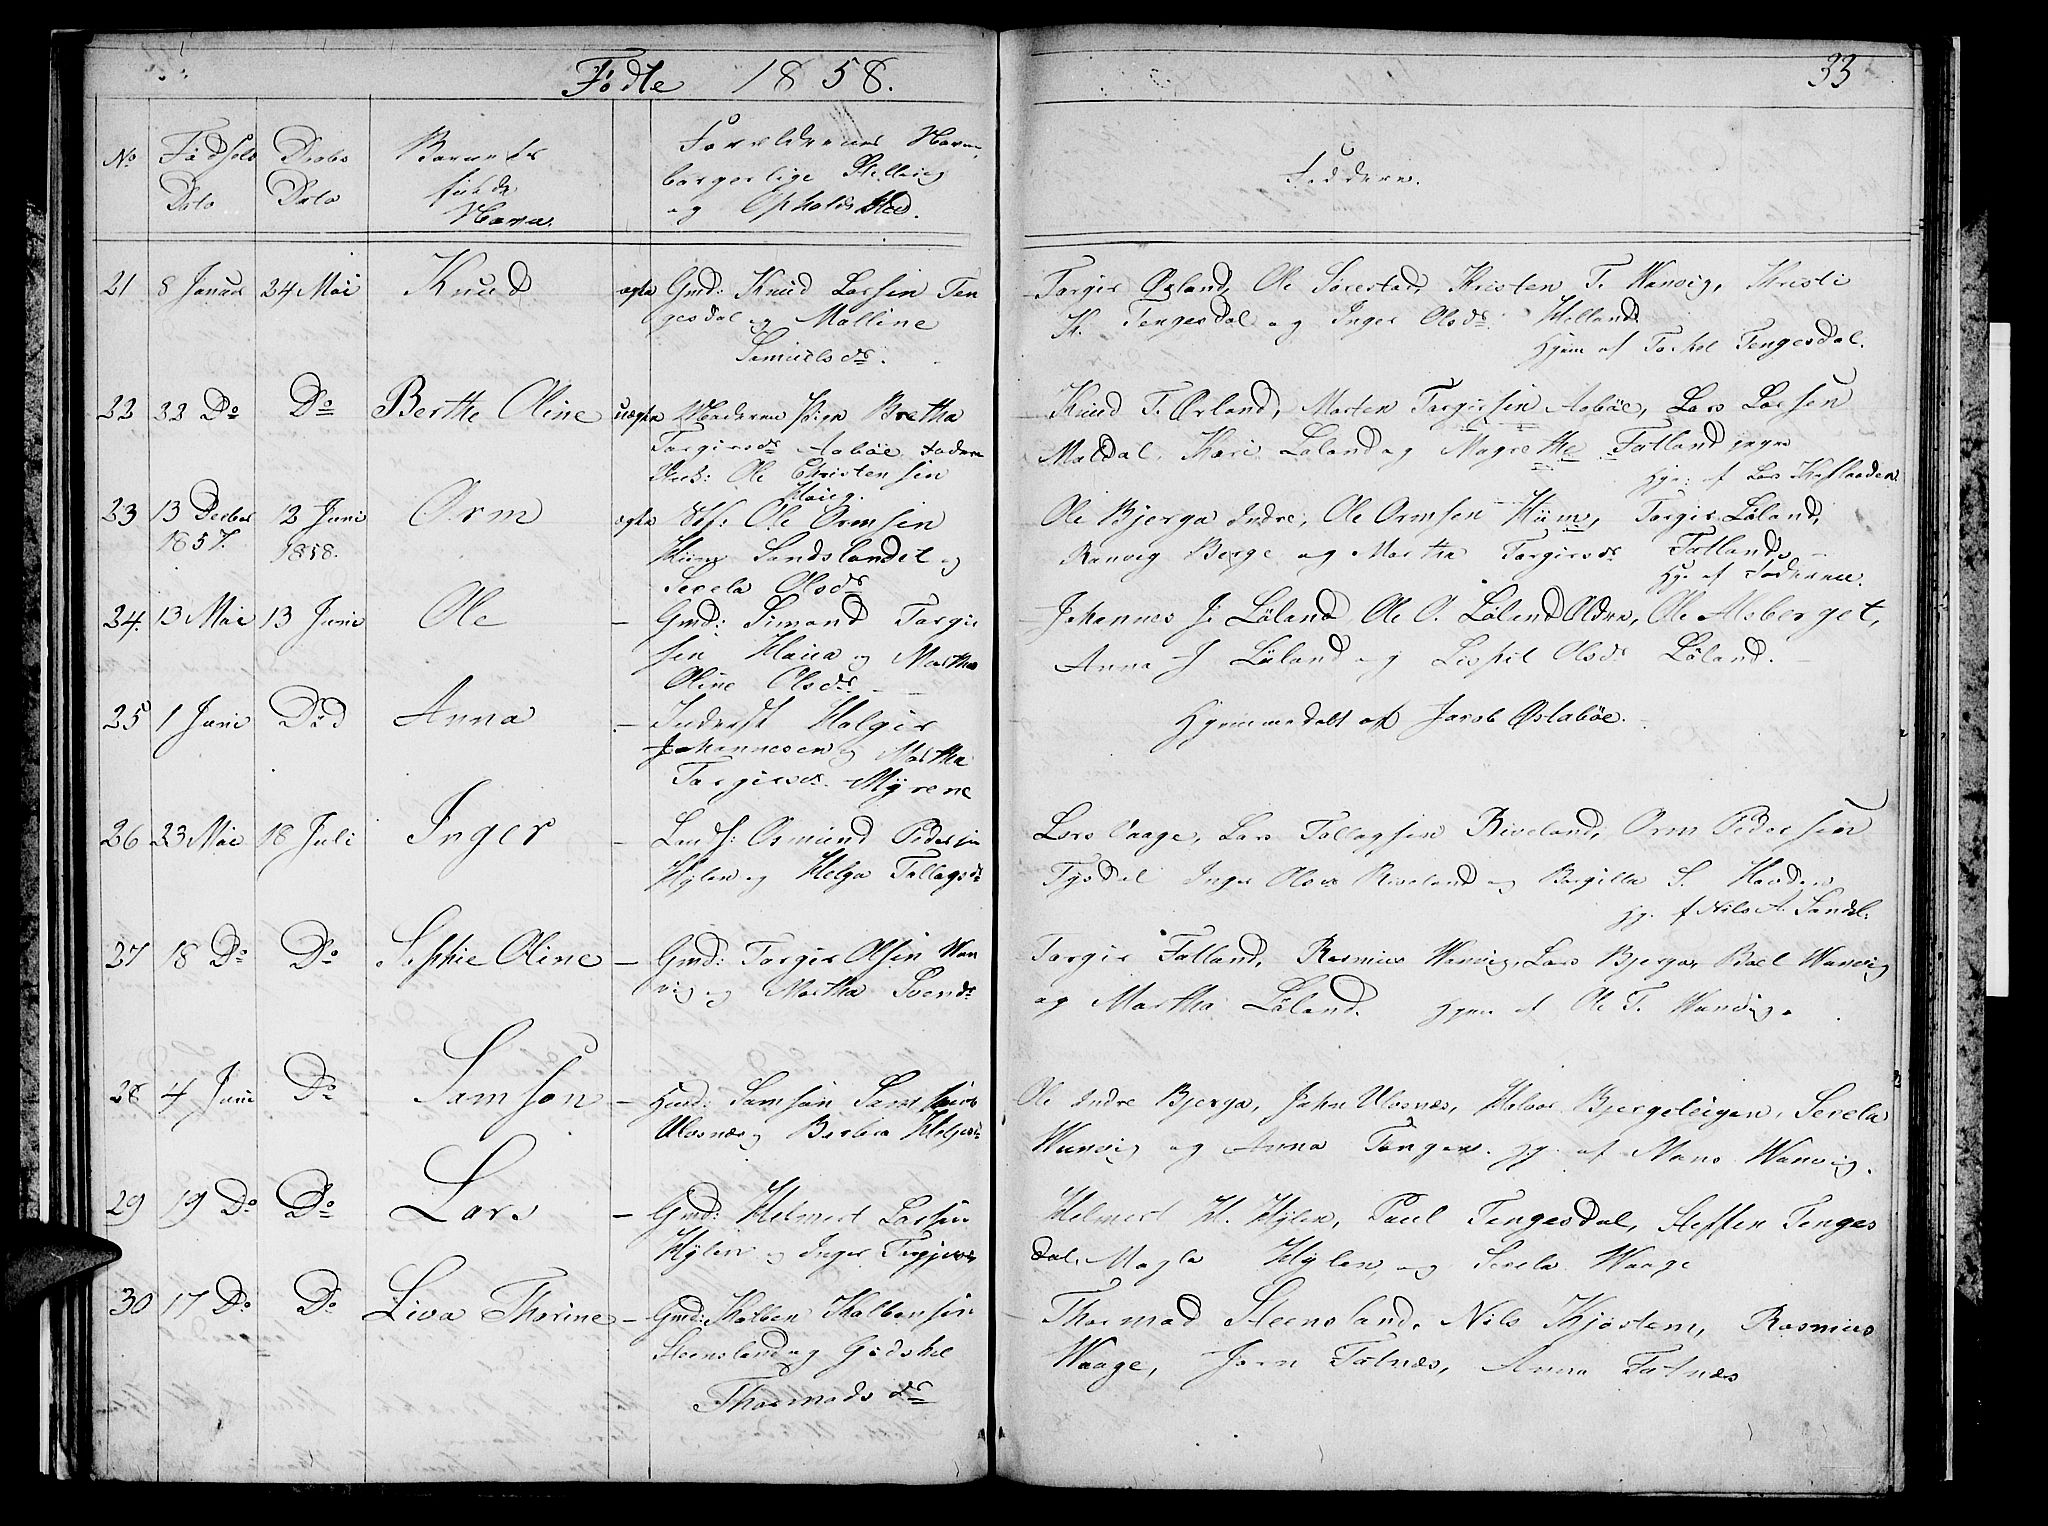 Födte 1858.
33
No
Födsels Dato
Daabs Dato
Barnets fulde Navn.
Forældrenes Navn, borgerlige Stilling og Opholdssted.
Faddere.
21 8 Januar 24 Mai Knud ægte Gmd: Knud Larsen Ten
gesdal og Malline
Samuelsdr.
Torger Øxland, Ole Sørestad, Kristen T. Wanvig, Kristi
K. Tengesdal og Inger Olsdr. Helland
Hjem af Torkel Tengesdal.
22 22 Do Do Berthe Oline uægte Moderen Pige Bretha
Torgersdr Aabøe Faderen
Ole Christensen
Knud T. Ørland, Morten Torgersen Aabøe, Lars Larsen
Maldal, Kari Løland og Magrethe Fatland
23 13 Decbr 1857. 12 Juni 1858. Orm ægte Ole Ormsen
Hiim Sandslandet og
Serela Olsdr
Ole Bjerga Indre, Ole Ormsen Hiim, Torger Løland,
Ranveg Berge og Martha Torgersdr Fatland
Hj. af Faderen.
24. 13 Mai 13 Juni Ole — Gmd: Simond Torger
sen og Martha
Oline Olsdr.
Johannes J. Løland Ole O. Løland Ældre, Ole Alsberget,
Anna J Løland og Olsdr Løland.
25 1 Juni Død Anna — Inderst Holger
Johannesen og Martha
Torgersdr. Myrene
Hjemmedøbt af Jacob Østabøe.
26 23 Mai 18 Juli Inger — Osmund Pedersen
Hylen og Helga Tollagsdr
Lars Vaage, Lars Tollagsen Riveland, Orm Pedersen
Tysdal Inger Olsdr Riveland og S.
Hj. af Nils A. Sandsl.
27 18 Do Do Sophie Oline — Gmd: Torger Olsen Wan
vig og Martha Svendsdr
Torger Fatland, Rasmus Wanvig, Lars Bjerga, Boel Wanvig
og Martha Løland. Hjem af Ole T. Wanvig.
28 4 Juni Do Samson — Samson Samsons
Ulvsnæs og Berbra
Ole Indre Bjerga, John Ulvsnæs, Bjergeteigen, Serela
Wanvig og Anna Tangen. hj. af Mons Wanvig.
29 19 Do Do Lars — Gmd: Helmert Larsen
Hylen og Inger
Helmert H. Hylen, Paul Tengesdal, Steffen Tenges
dal, Magla Hylen, og Serela Waage
30 17 Do Do Liva Thorine — Gmd: Kolben Kolbensen
Steensland og Gødskel
Thormodsdr
Thormod Steensland, Nils Kjøstem, Rasmus
Waage, Jorn Fatnæs, Anna Fatnæs